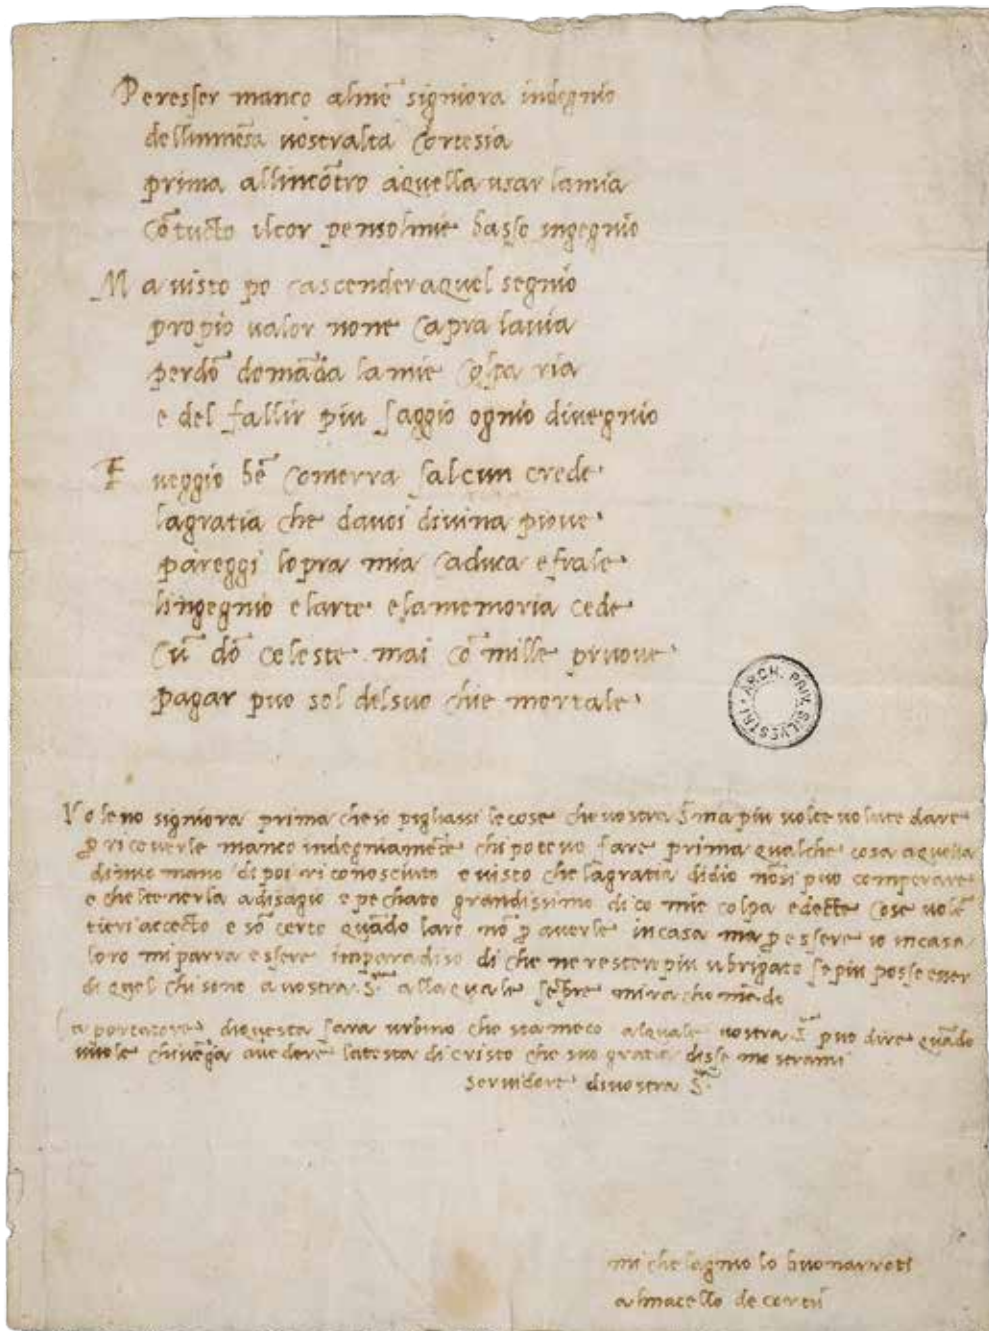 Peresser manco almē signiora indegnio
dellinmēsa uostralta cortesia
prima allincōtro aquella usar lamia
cō tucto ilcor pensolmie basso ingegnio
Ma uisto po cascender aquel segnio
propio ualor none capra lauia
perdō domāda la mie colpa ria
e del fallir piu saggio ognio diuegnio
E ueggio bē comerra salcun crede
lagratia che dauoi diuina pioue
pareggi lopra mia caduca e frale
lingegnio e larte e la memoria cede
cū dō celeste mai cō mille pruoue
pagar puo sol delsuo chie mortale
ARCH. PRIV. SILVESTRI
Voleuo signiora prima cheio pigliassi le cose che uostra S.ma piu uolte uolute dare
p riceuerle manco indegniamēte chi poteuo fare prima qualche cosa a quella
di mie mano dipoi riconosciuto e uisto che lagratia didio nōsi puo comperare
e chelltenerla adisagio e pechato grandissimo dico mie colpa e decte cose uolē
tieri accecto e sō certo quādo larò nō p auerle incasa ma p essere io incasa
loro mi parra essere imparadiso di che ne restero piu ubrigato se piu posso esser
di quel chi sono a uostra S. alla quale sēpre mi rachomādo
La portatore diquesta sara urbino che sta meco alquale uostra S. puo dire quādo
uuole chi uēga auedere latesta di cristo che suo gratia disse mostrami
seruidore di uostra S.
michelagniolo buonarroti
almacello de corui